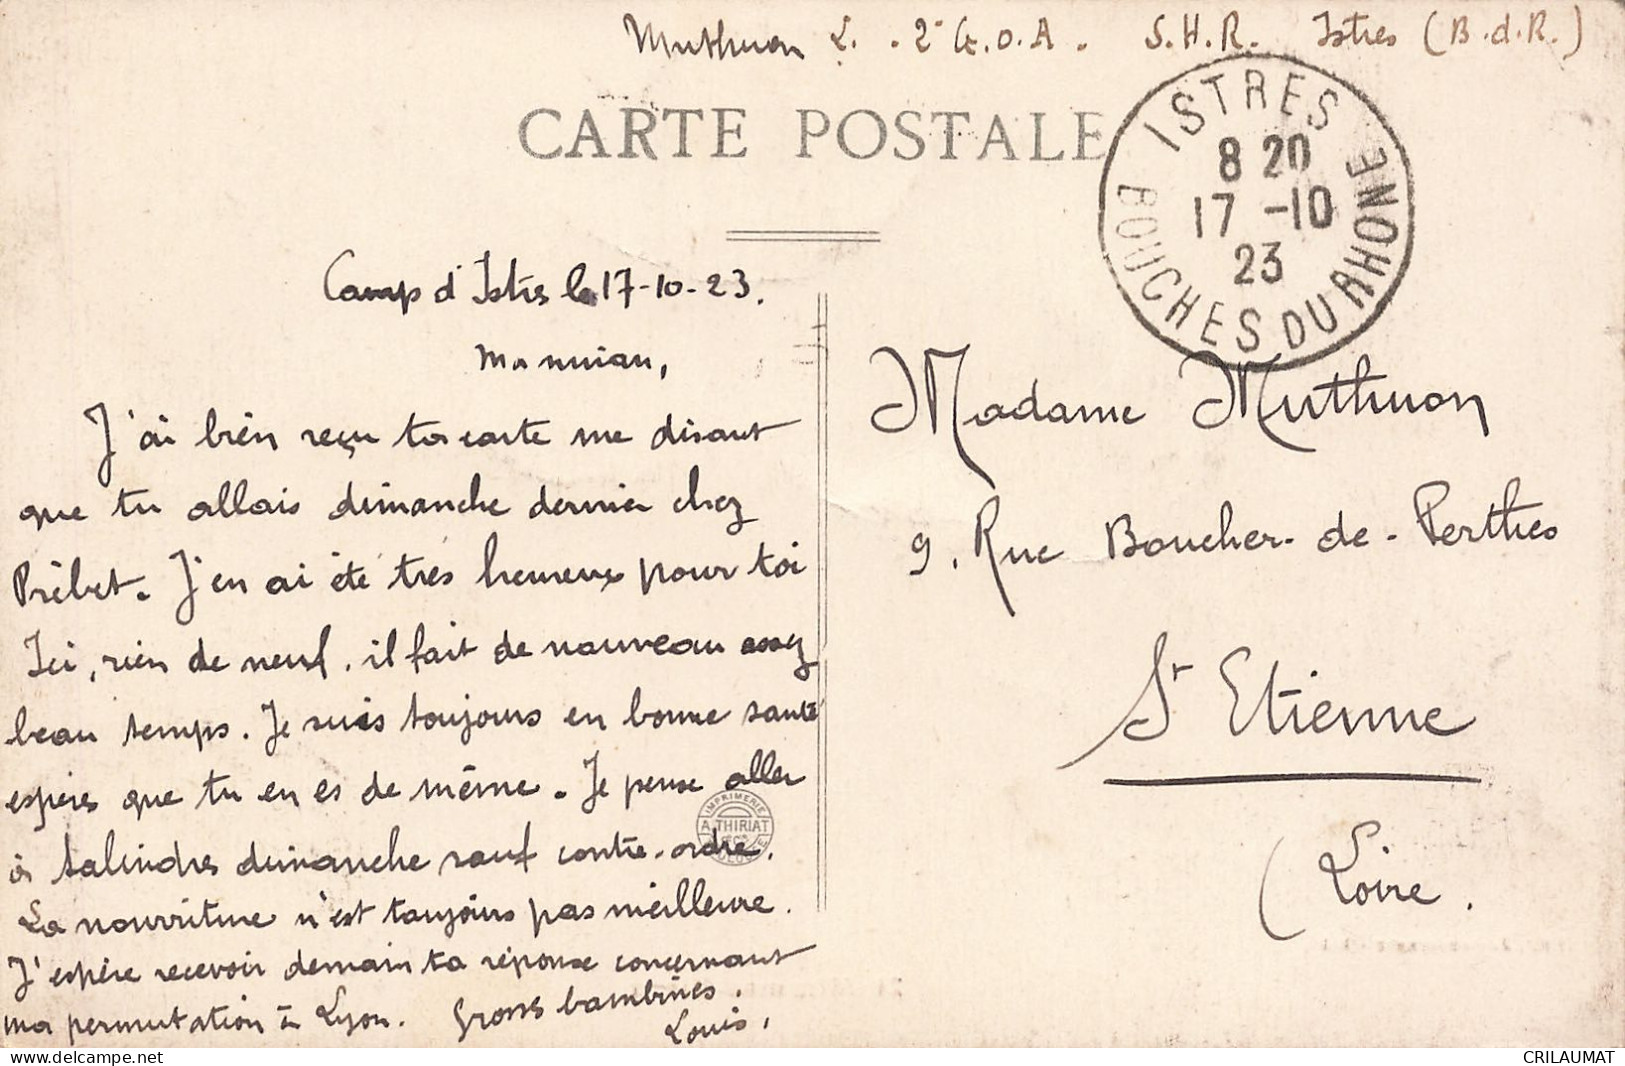 Muthuon L. . 2e G.O.A. S.H.R. Istres (B.d.R.)
CARTE POSTALE
ISTRES
8 20
17 -10
23
BOUCHES DU RHONE
Camp d'Istres le 17-10-23.
Ma nuian,
J'ai bien reçu ta carte me disant
que tu allais dimanche dernier chez
Prébet. J'en ai été très heureux pour toi
Ici, rien de neuf. il fait de nouveau assez
beau temps. Je suis toujours en bonne santé
espères que tu en es de même. Je pense aller
à Salindres dimanche sauf contre-ordre.
La nourriture n'est toujours pas meilleure.
J'espère recevoir demain ta réponse concernant
ma permutation à Lyon. Grosses bambines.
Louis,
IMPRIMERIE
A. THIRIAT
& Cie
TOULOUSE
Madame Muthuon
9. Rue Boucher-de-Perthes
St Etienne
(Loire.
delcampe.net
CRILAUMAT